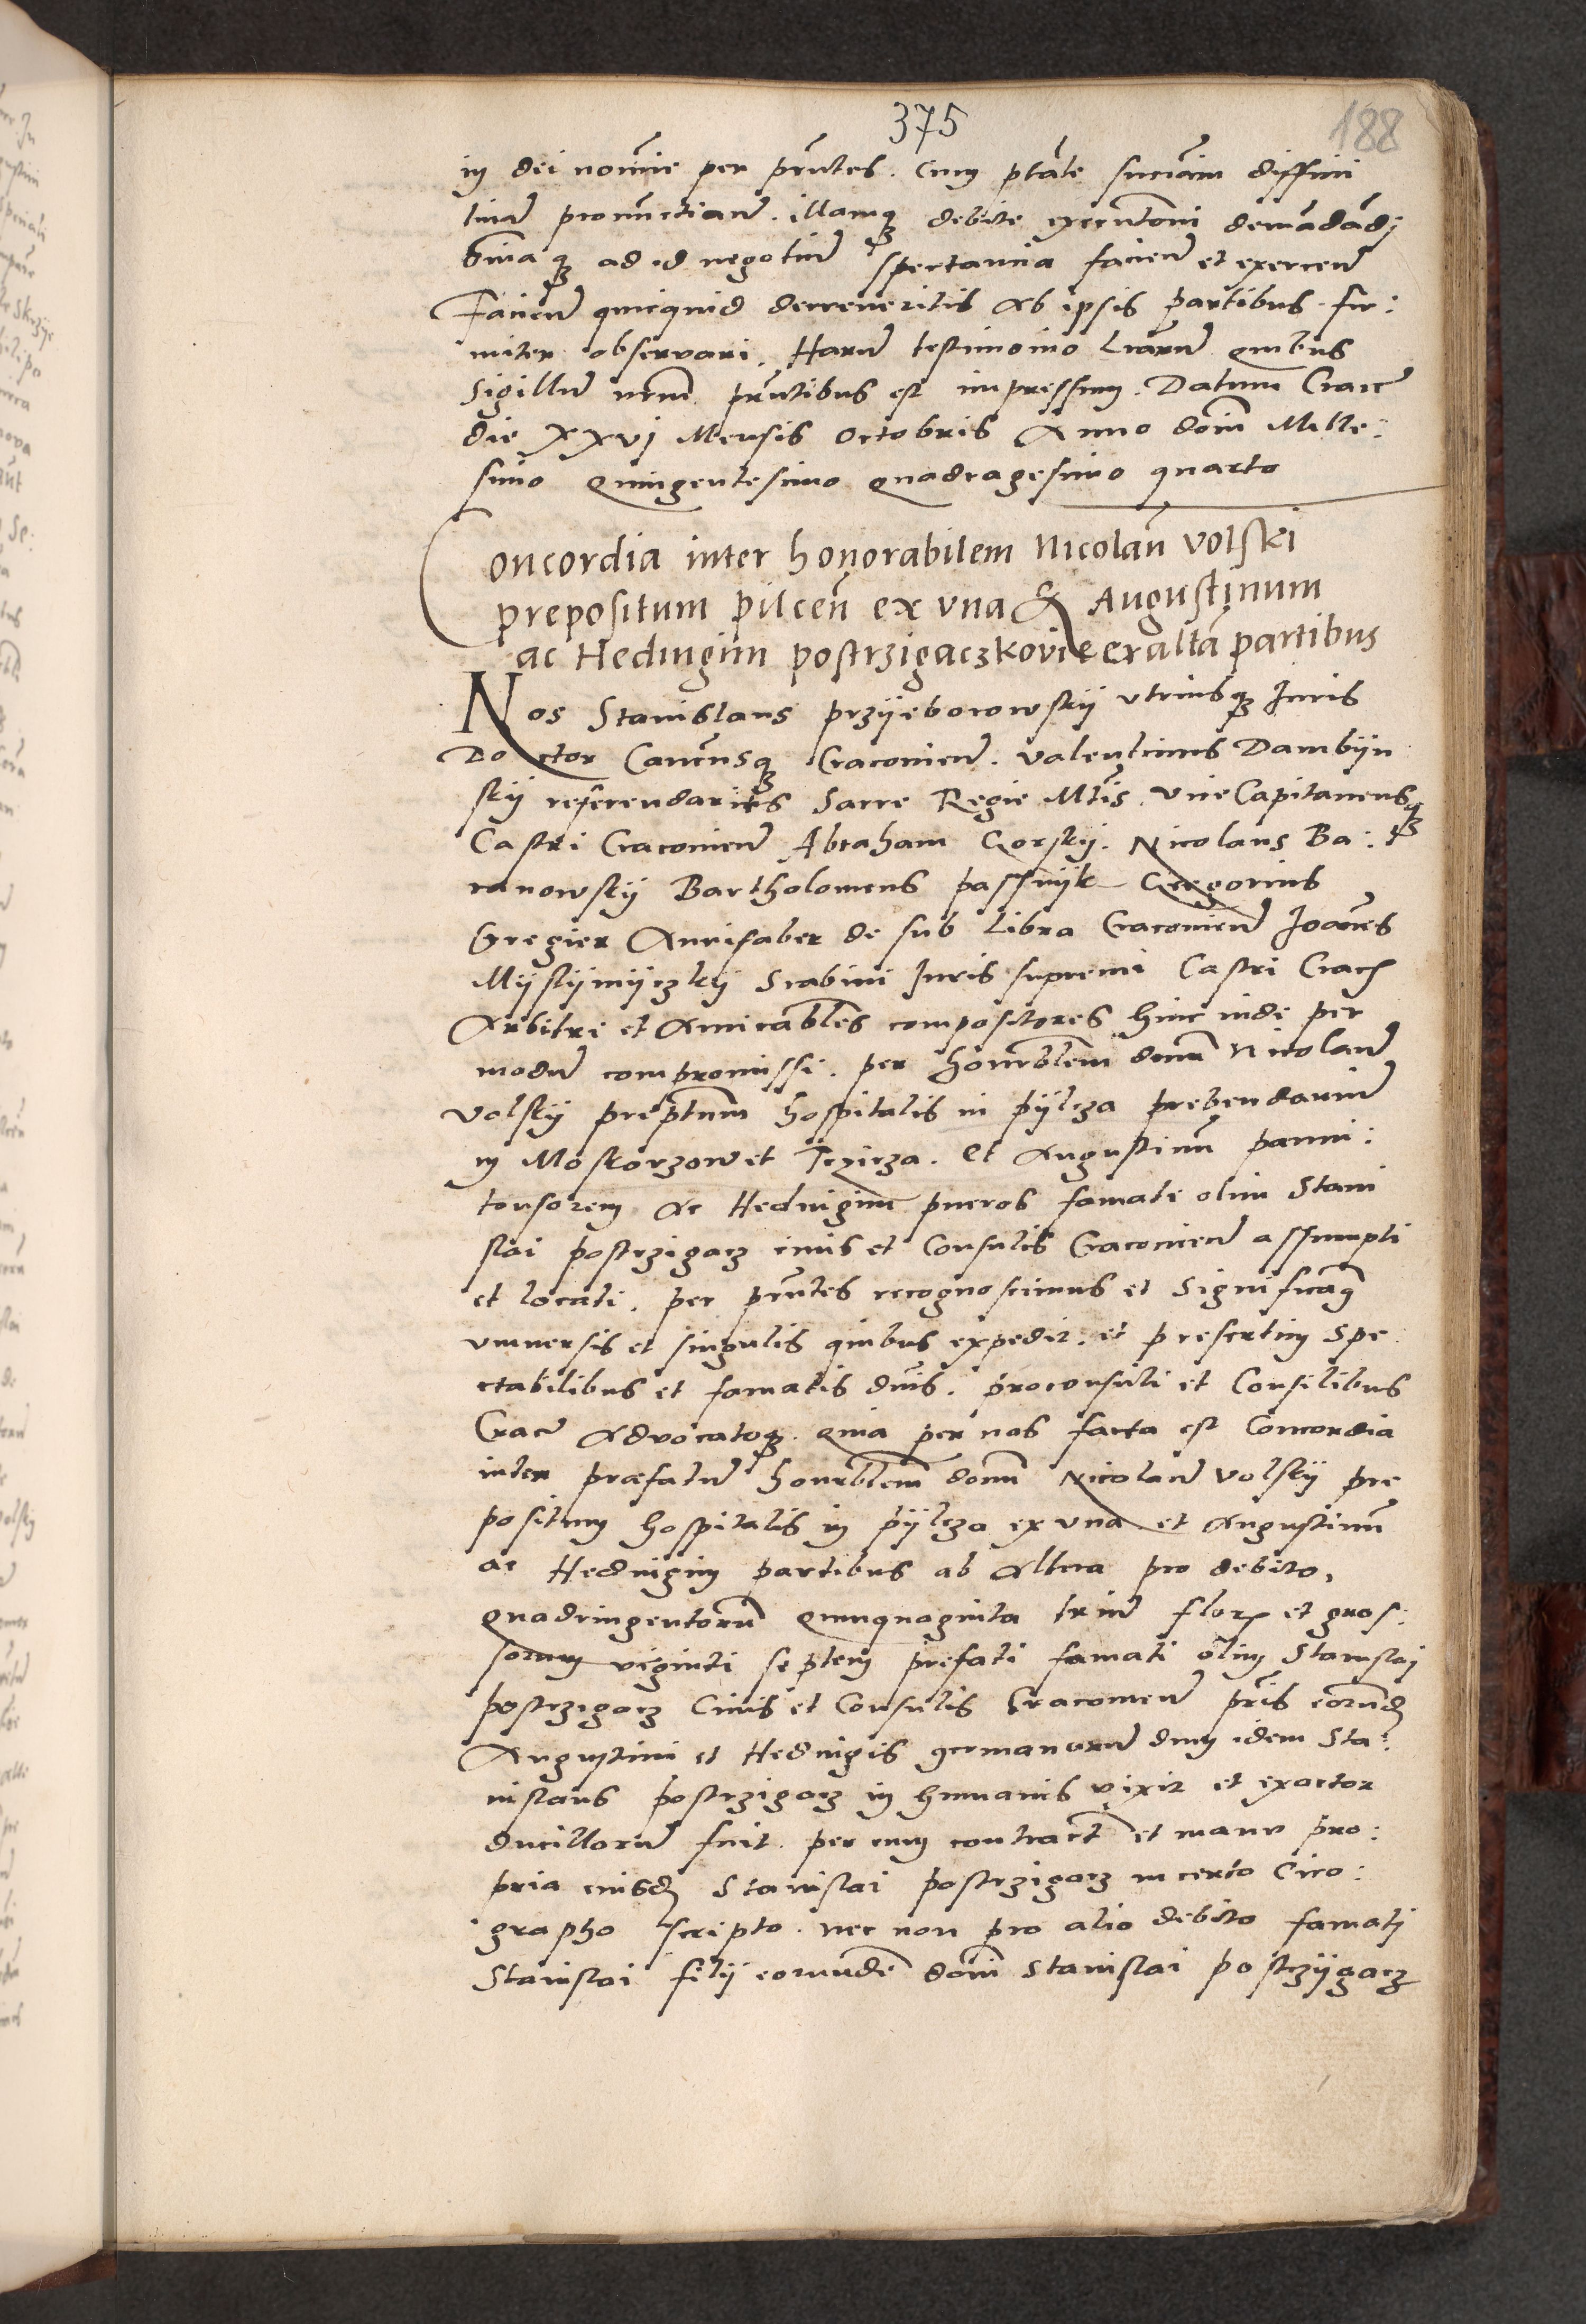 375
188
in dei nomine per pñtes. Cum ptãte sniãm diffini
tivã pronunctiand. illamq debite executioni demãdãdj
omiaq ad id negotiũ spectancia faciend et exercend
Faciend quicquid decreveritis Ab ipsis partibus fir:
miter observari. Harũ testimonio lrãrũ quibus
Sigillũ nrm̃ pñtibus est impressum. Datum Cracẽ
die XXvj Mensis Octobris Anno domi Mille:
simo Quingentesimo Quadragesimo quarto
Concordia inter honorabilem Nicolaũ Volski
prepositum pilceñ ex vna & Augustinum
ac Heduigim postrzigaczkovie ex altã partibus
Nos Stanislaus przijeborowskij vtriusq Juris
Doctor Cancusq Cracovien. Valentinus Dambijn
skij referendarius Sacre Regie Mtis. Vice Capitaneusq
Castri Cracovien Abraham Gorskij. Nicolaus Ba:
ranowskij Bartholomeus passnijk Gregorius
Gregier Aurifaber de sub libra Cracovien Joanes
Mijskijmijczkij Scabini Juris supremi Castri Crac
Arbitri et Amicabiles compositores hinc inde per
modũ compromissi. per honorblem dnm Nicolaũ
Volskij prepptum hospitalis in pijlcza prebendariũ
in Moskorzow et Jczicza. et Augustinũ panni:
tonsorem Ac Heduigim pueros famati olim Stani
slai postrzigacz civis et Consulis Cracovien assumpti
et locati. per pñtes recognoscimus et significamq
vniversis et singulis quibus expedit. et presertim Spe
ctabilibus et famatis dnis. proconsuli et Consulibus
Crac Advocatoq. Quia per nos facta est Concordia
inter præfatũ honorblem domi Nicolaũ Volskij pre
positum hospitalis in pijlcza ex vna et Augustinũ
ac Heduigim partibus ab Altera pro debito,
quadringentorũ Quinquaginta triũ flor et gros:
sorum viginti septem prefati famati olim Stanislaj
postrzigacz Civis et Consulis Cracovien pris eorund
Augustini et Heduigis germanorũ dum idem Sta:
nislaus postrzigacz in humanis vixit et exactor
ducillorũ fuit. per eum contract et manu pro:
pria eiusd Stanislai postrzigacz in certo Ciro:
grapho scripto. nec non pro alio debito famatj
Stanislai filij eorunde domi Stanislai postrzijgacz